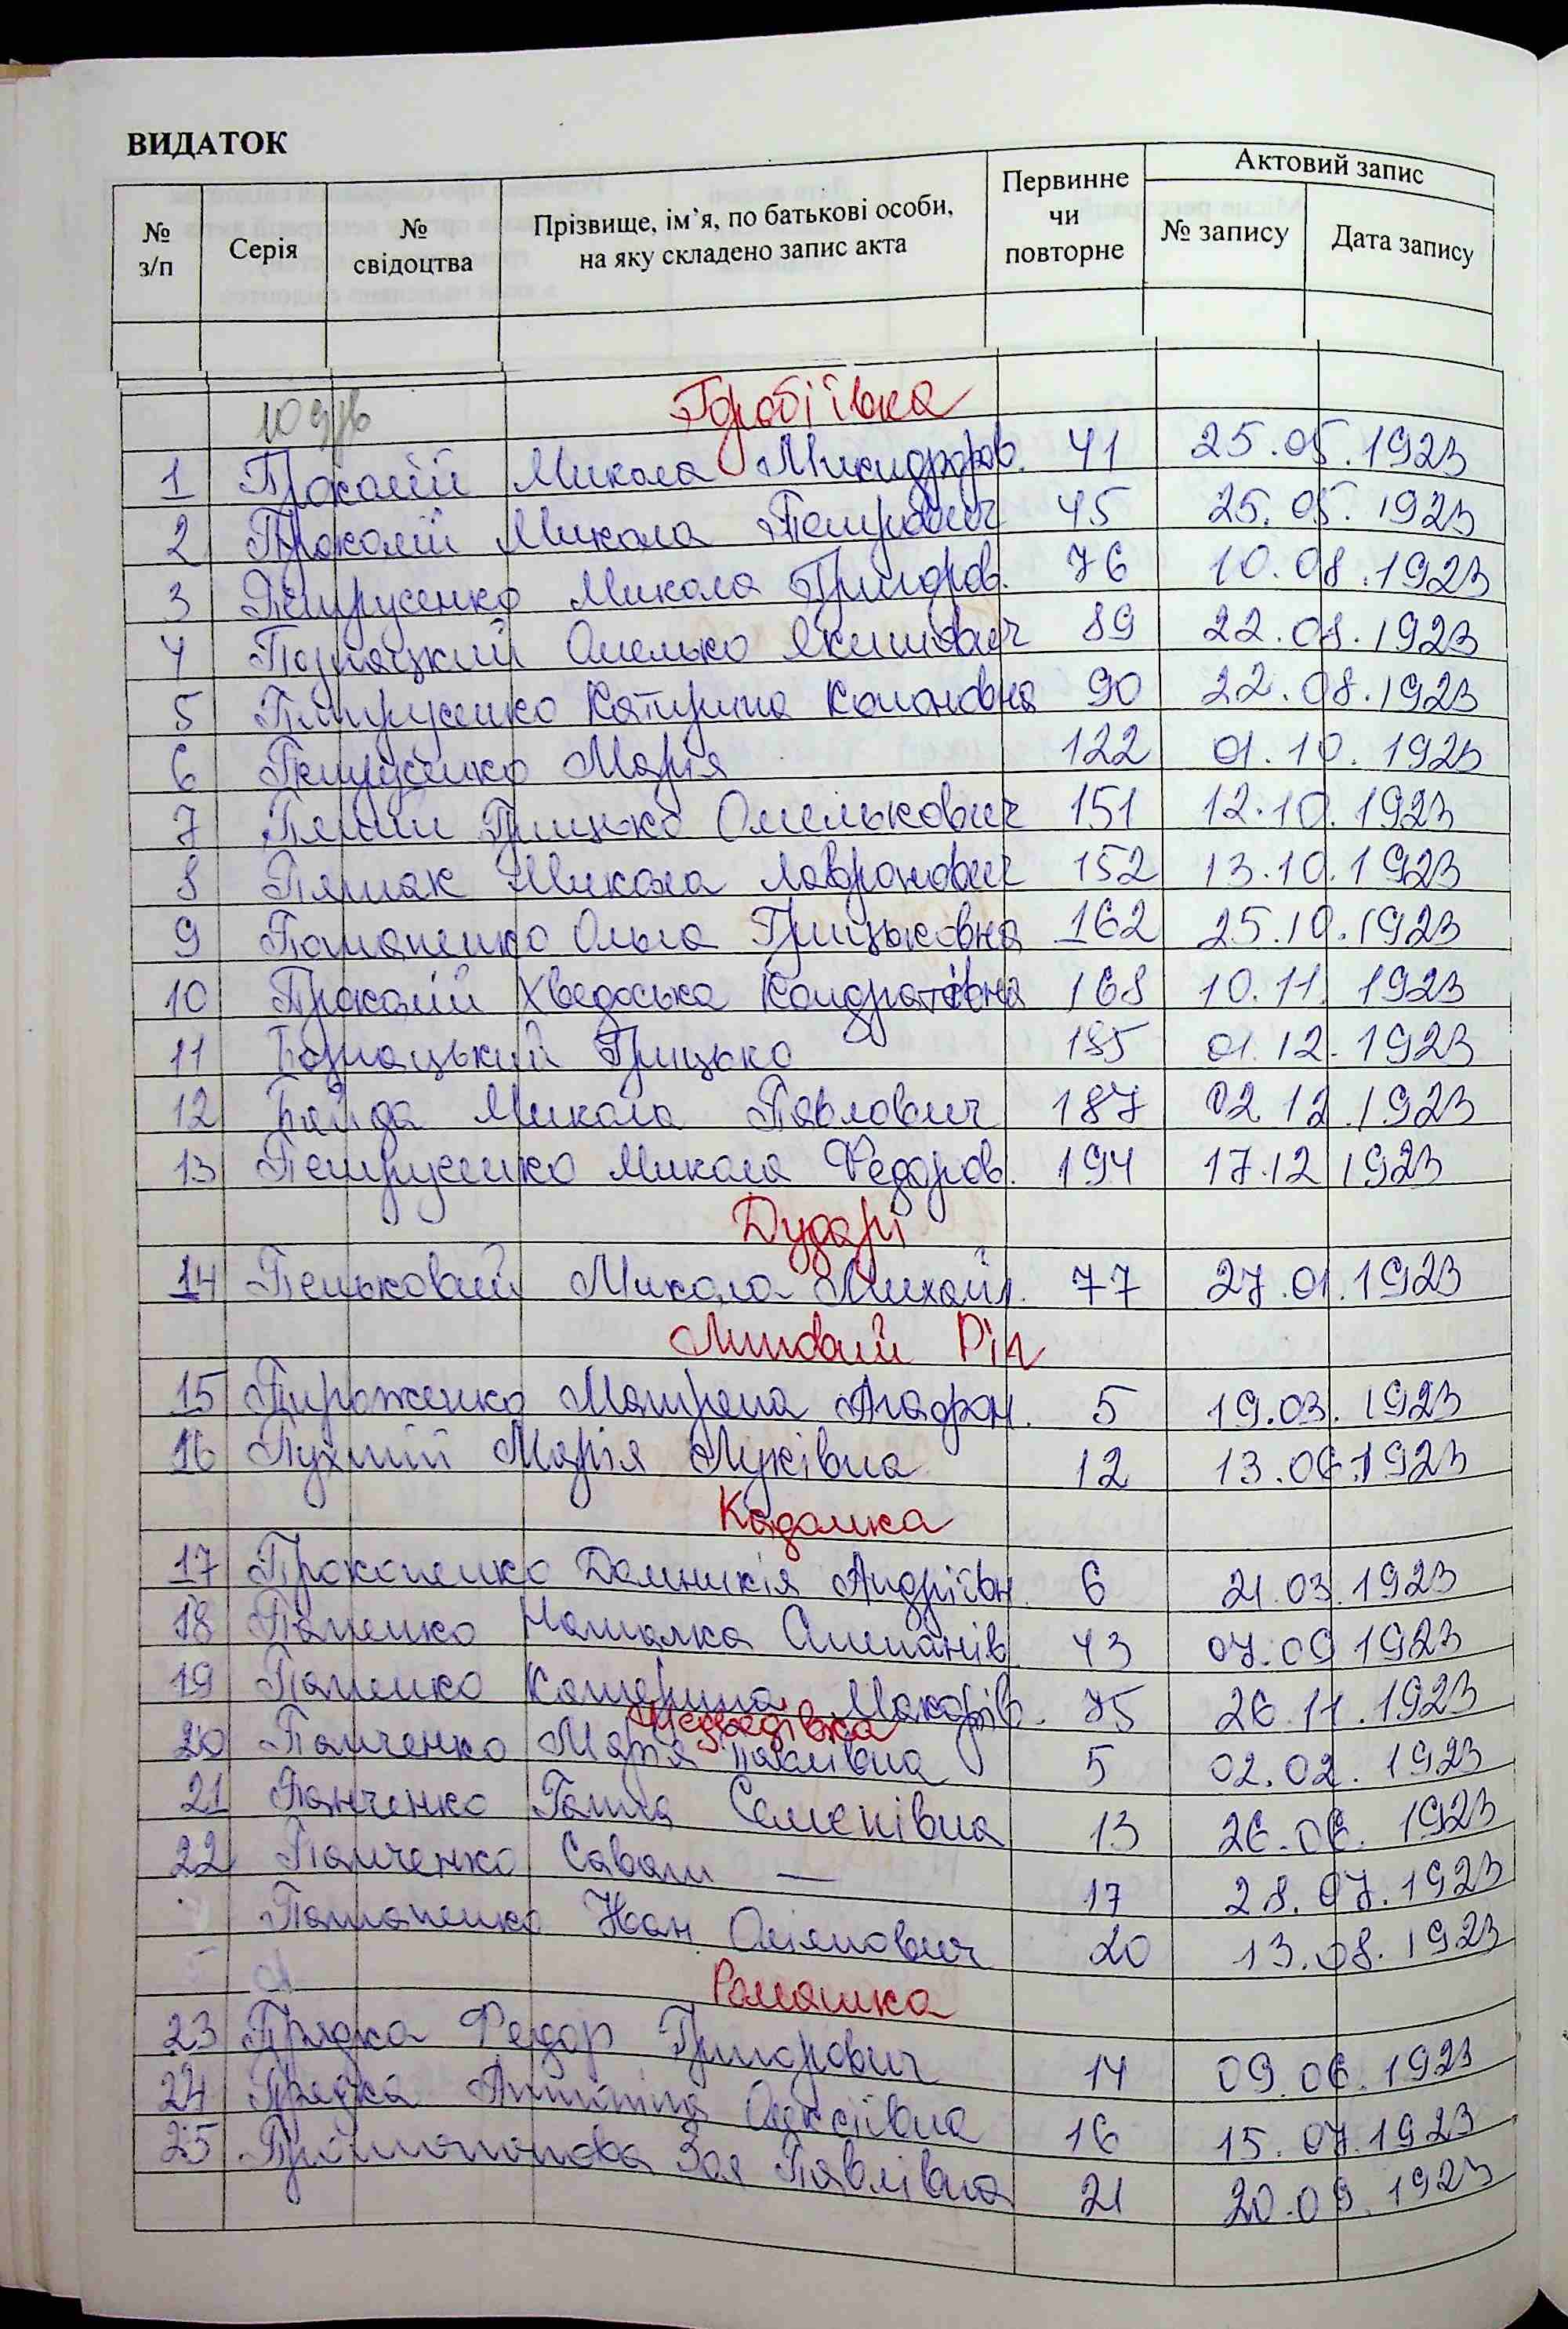 ВИДАТОК
№ з/п Серія № свідоцтва Прізвище, ім’я, по батькові особи, на яку складено запис акта Первинне чи повторне Актовий запис
№ запису Дата запису
Гробіївка
1 Прокопій Микола Никифоров. 41 25.05.1923
2 Прокопій Микола Петрович 45 25.05.1923
3 Петрусенко Микола Григоров. 76 10.08.1923
4 Познацкий Омелько Якимович 89 22.08.1923
5 Петрусенко Катирина Кононовна 90 22.08.1923
6 Петрусенко Марія 122 01.10.1923
7 Грицько Омелькович 151 12.10.1923
8 Микола 152 13.10.1923
9 Потапенко Ольга Грицьковна 162 25.10.1923
10 Прокопій Хведоська Кондратівна 168 10.11.1923
11 Познацький Грицько 185 01.12.1923
12 Микола Павлович 187 02.12.1923
13 Петрусенко Микола Федоров. 194 17.12.1923
Дударі
14 Пеньковий Микола Михайл. 77 27.01.1923
Липовий Ріг
15 Пироженко Мотрона Агафон. 5 19.03.1923
16 Пухлій Марія Луківна 12 13.06.1923
Кадомка
17 Прокопенко Домникія Андріївн. 6 21.03.1923
18 Папенко Наталка Степанів. 43 07.09.1923
19 Папенко Катерина Макарів. 75 26.11.1923
Медведівка
20 Панченко Марія Павлівна 5 02.02.1923
21 Панченко Ганна Семенівна 13 26.06.1923
22 Панченко — 17 28.07.1923
Потапенко Іван 20 13.08.1923
Ромашка
23 Прядка Федор Григорович 14 09.06.1923
24 Прядка Антоніна Олексіївна 16 15.07.1923
25 Протопопова Зоя Павлівна 21 20.09.1923